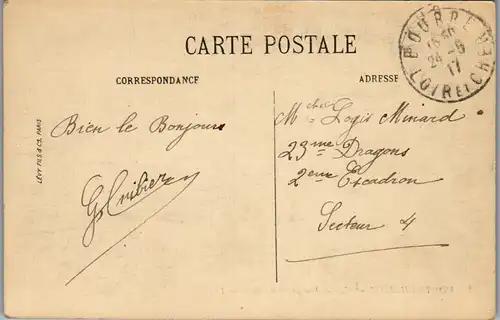 CARTE POSTALE
CORRESPONDANCE
ADRESSE
BOURRE
15 30
24 - 6
17
LOIR ET CHER
LÉVY FILS & CIE, PARIS
Bien le Bonjour
G. Cribier
Mchal Logis Minard
23me Dragons
2eme Escadron
Secteur 4